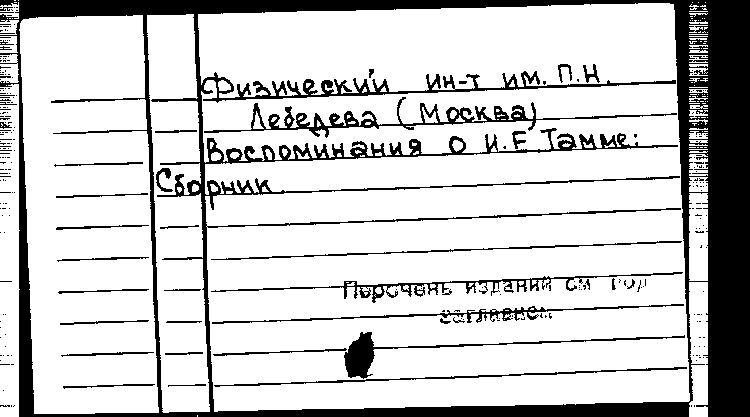 Физический ин-т им. П.Н.
Лебедева (Москва)
Воспоминания о И.Е Тамме:
Сборник.
Перечень изданий см под
заглавием